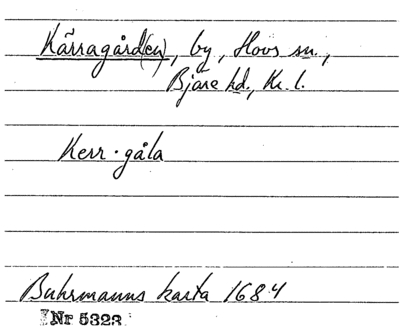 Kärragård(en), by, Hovs sn.,
Bjäre hd., Kr. l.
Kerr-gåla
Buhrmanns karta 1684
Nr 5323